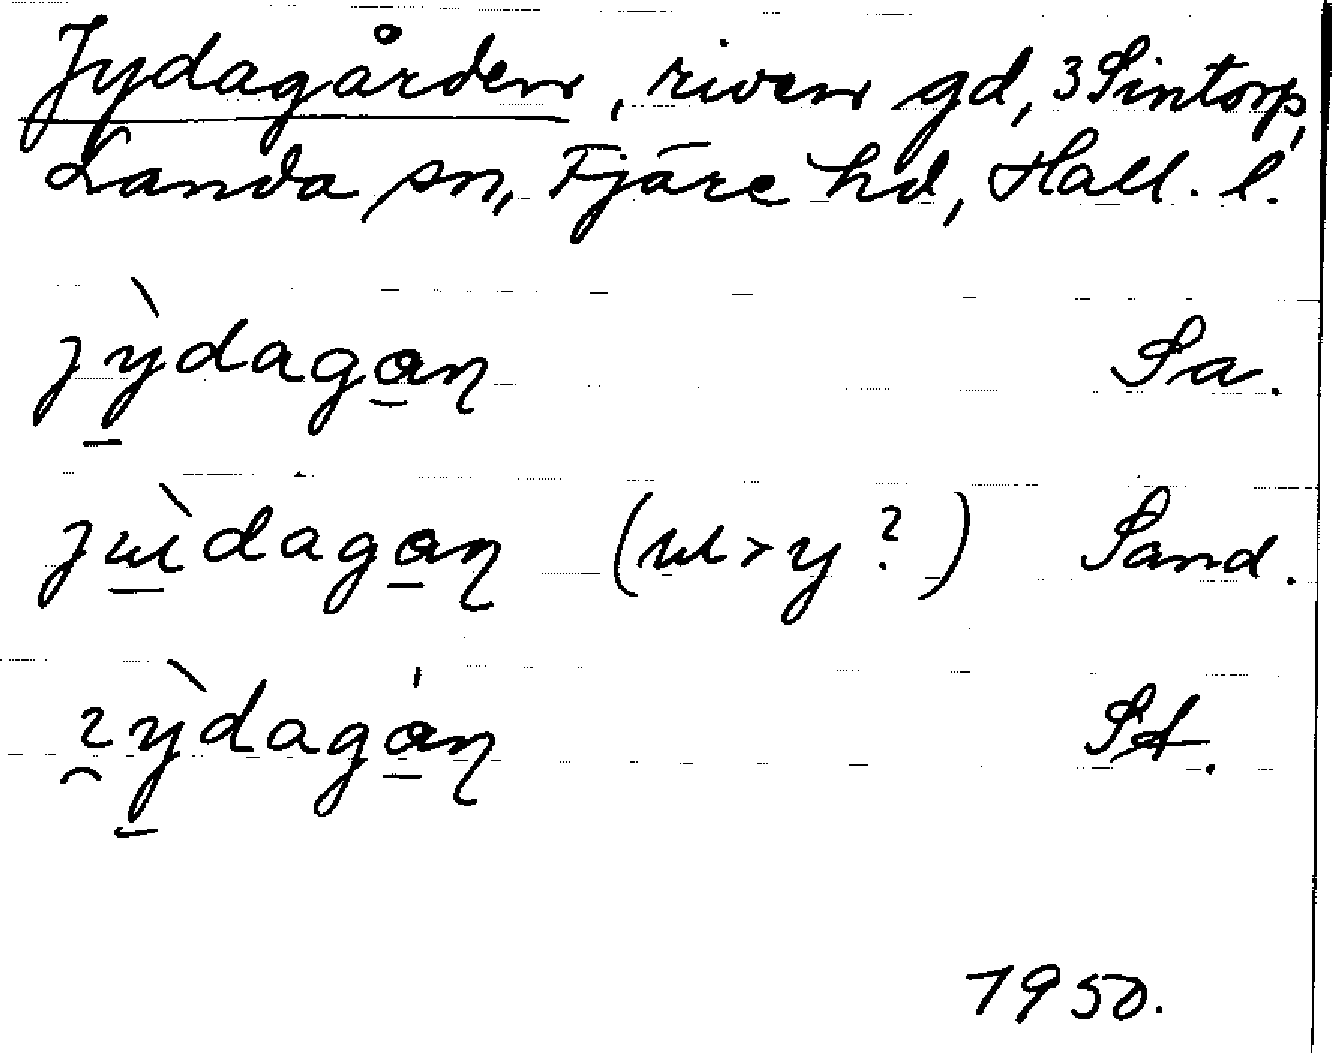 Jydagården, riven gd, 3 Sintorp,
Landa sn, Fjäre hd, Hall. l.
jỳdagan Sa.
jɯ̀dagan (ɯ>y?) Sand.
ɂỳdagȧn St.
1950.